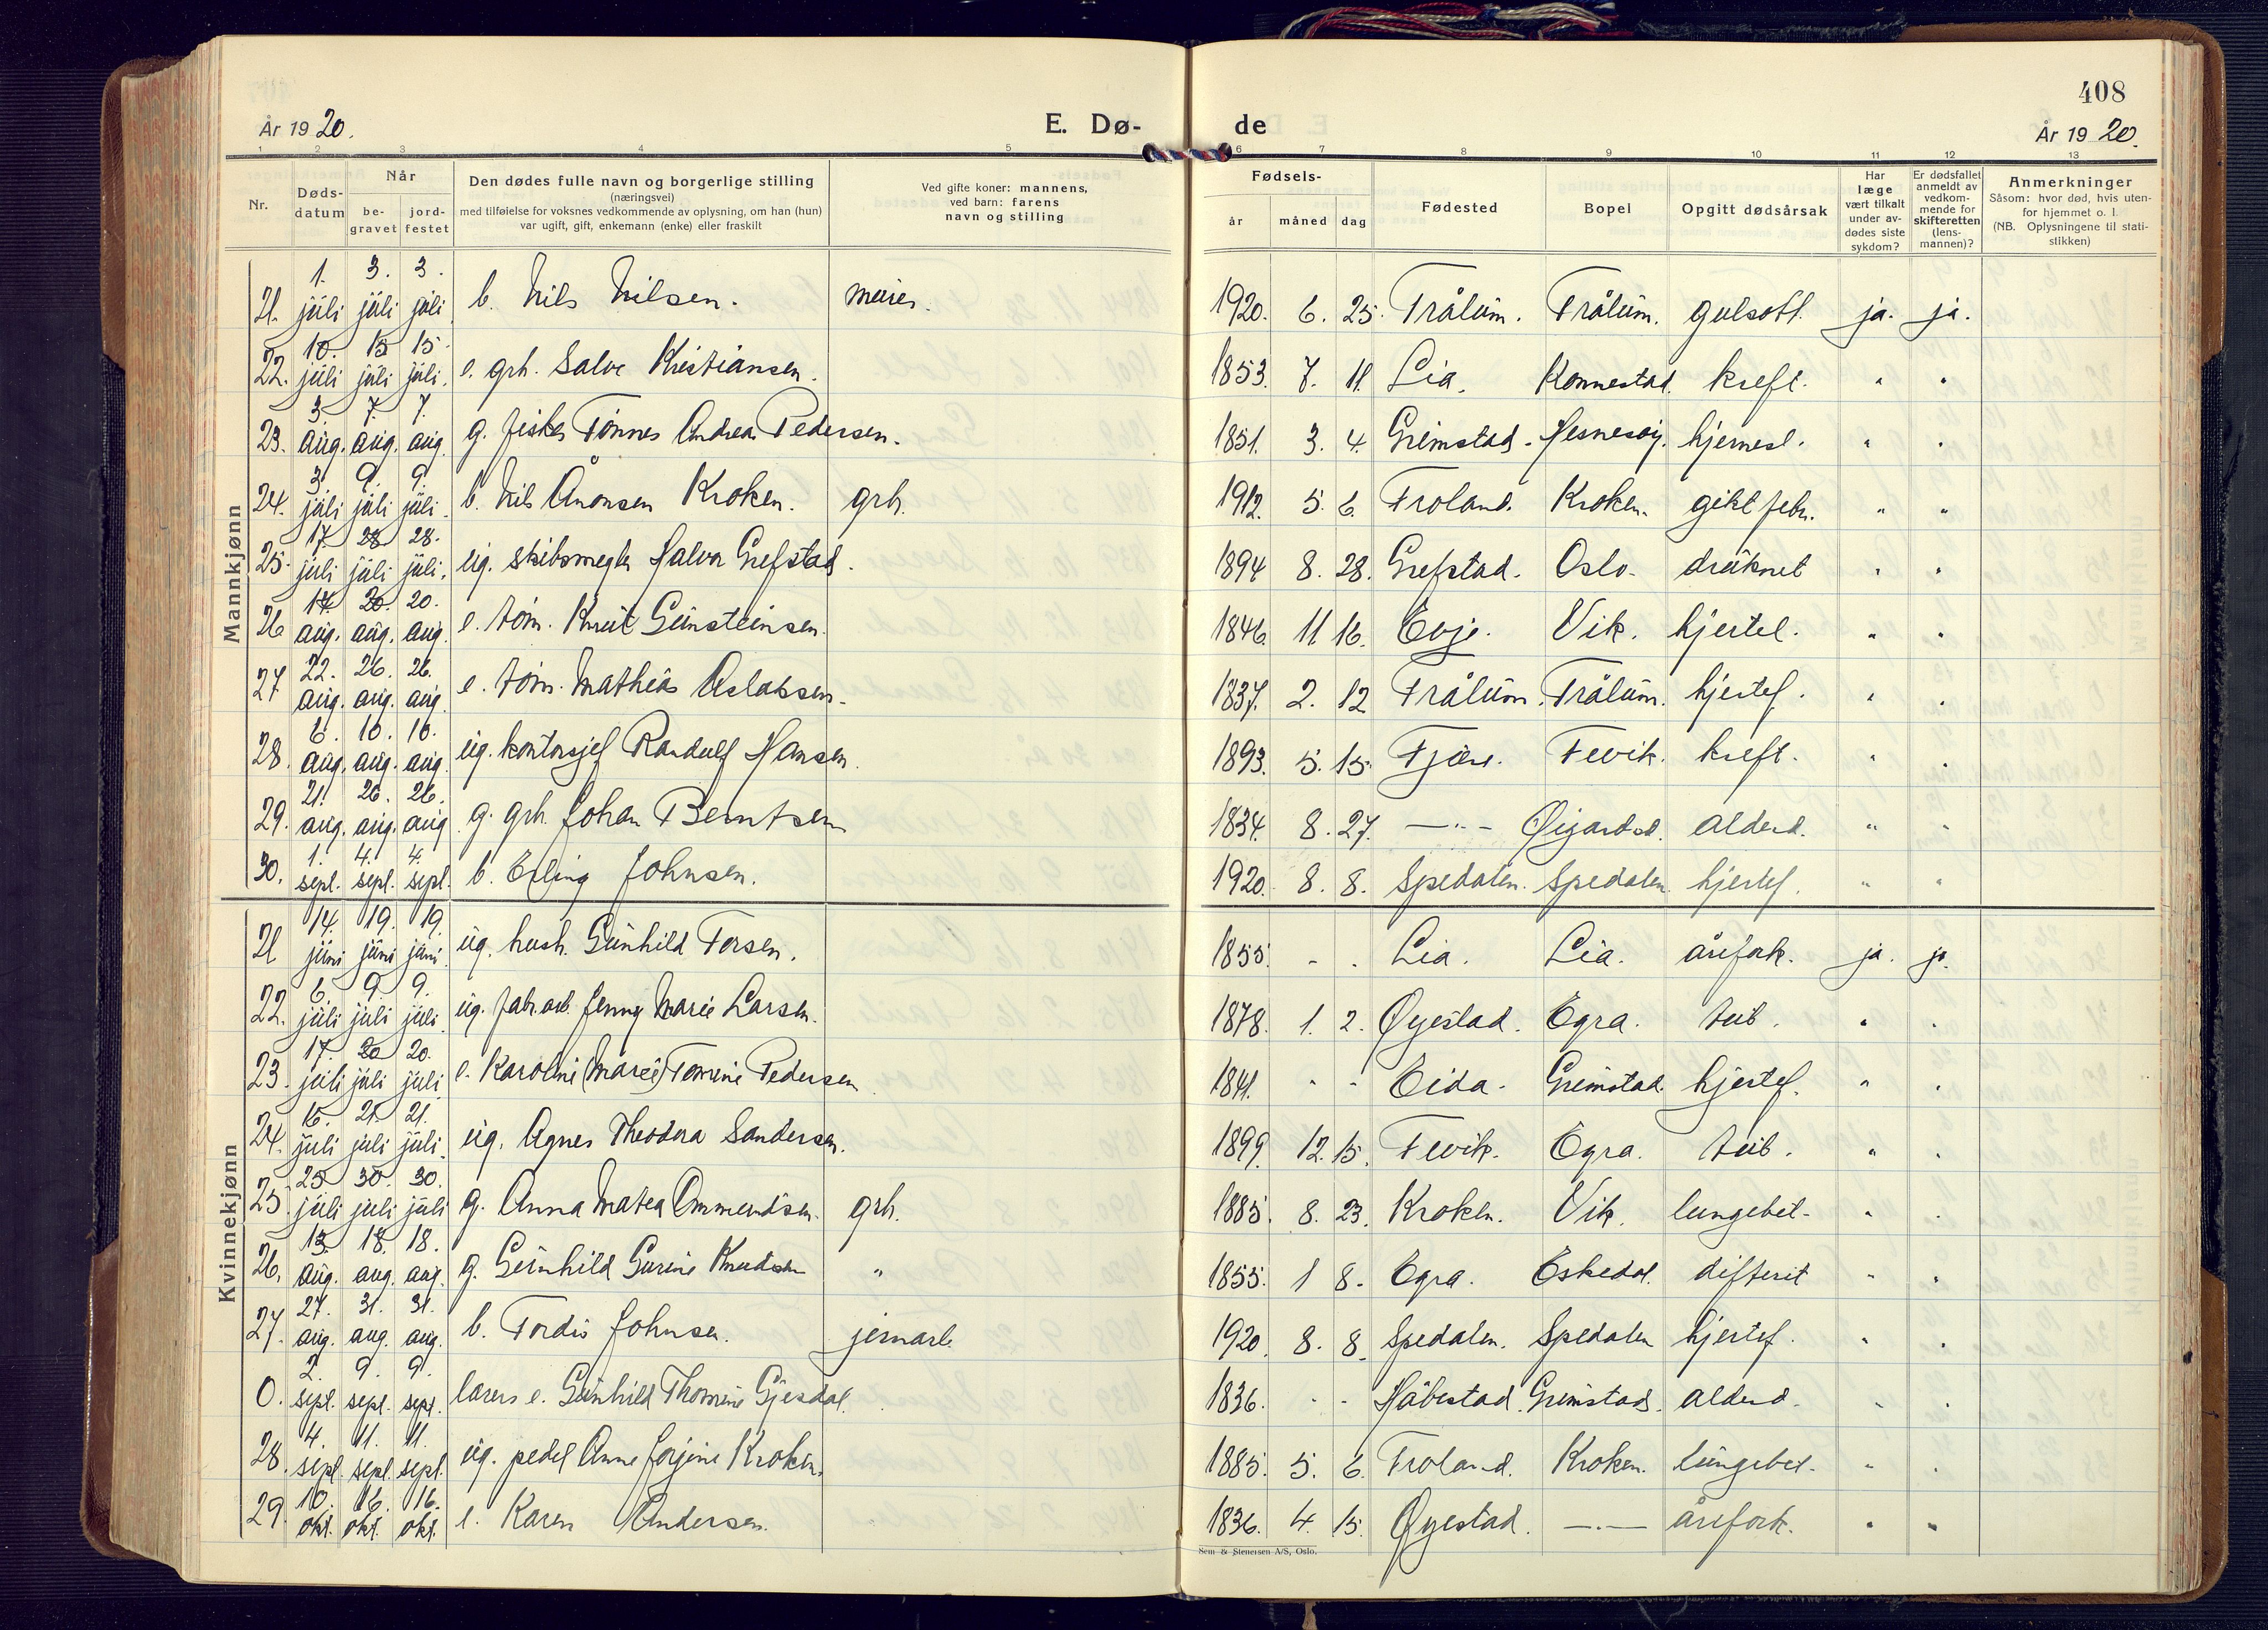 408
År 1920.
E. Dø-
de
År 1920.
1 2 3 4 5 6 7 8 9 10 11 12 13
Nr.
Dødsdatum
Når
begravet
jordfestet
Den dødes fulle navn og borgerlige stilling
(næringsvei)
med tilføielse for voksnes vedkommende av oplysning, om han (hun)
var ugift, gift, enkemann (enke) eller fraskilt
Ved gifte koner: mannens,
ved barn: farens
navn og stilling
Fødsels-
år måned dag
Fødested
Bopel
Opgitt dødsårsak
Har
læge
vært tilkalt
under av-
dødes siste
sykdom?
Er dødsfallet
anmeldt av
vedkom-
mende for
skifteretten
(lens-
mannen)?
Anmerkninger
Såsom: hvor død, hvis uten-
for hjemmet o. l.
(NB. Oplysningene til stati-
stikken)
Mannkjønn
21. 1. juli 3. juli 3. juli b. Nils Nilsen. murer. 1920. 6. 25. Trålum. Trålum. gulsott. ja. ja.
22. 10. juli 15 juli 15. juli. e. grh. Salve Kristiansen. 1853. 7. 11. Lia. Konnestad. kreft. " "
23. 3. aug. 7. aug. 7. aug. g. fisker Tønnes Andreas Pedersen. 1851. 3. 4. Grimstad. Hesnesøy. hjernesl. " "
24. 3. juli 9. juli 9. juli. b. Nils Ånonsen Kroken. grh. 1912. 5. 6. Froland. Kroken. gikt febr. " "
25. 17. juli 28 juli 28. juli. ug. skibsmegler Halvor Grefstad. 1894 8. 28. Grefstad. Oslo. druknet " "
26 14. aug. 20. aug. 20. aug. e. tøm. Knut Gunsteinsen. 1846. 11 16. Evje. Vik. hjertel. " "
27 22. aug. 26. aug. 26. aug. e. tøm. Mathias Aslaksen. 1837. 2. 12 Trålum. Trålum. hjertef. " "
28. 6. aug. 10. aug. 10. aug. ug. kontorsjef Randulf Hansen. 1893. 5. 15. Fjære. Fevik. kreft. " "
29. 21. aug. 26. aug. 26. aug g. grh. Johan Berntsen 1834. 8. 27. —"— Øigardsd. alderd. " "
30. 1. sept. 4. sept. 4. sept. b. Erling Johnsen. 1920. 8. 8. Spedalen. Spedalen. hjertef. " "
Kvinnekjønn
21 14. juni 19. juni 19. juni ug. hush. Gunhild Torsen. 1855. - - Lia. Lia. årefork. ja. ja.
22. 6. juli 9. juli 9. juli ug. fabr.arb. Jenny Marie Larsen. 1878. 1. 2. Øyestad. Egra. tub. " "
23. 17. juli 20 juli 20. juli e. Karoline (Marie) Tomine Pedersen 1841. - - Eida. Grimstad. hjertef. " "
24. 15. juli 21. juli 21. juli. ug. Agnes Theodora Sandersen. 1899. 12. 15. Fevik. Egra. tub. " "
25. 25 juli 30. juli 30. juli g. Anna Matea Ommundsen. grh. 1885. 8. 23. Kroken. Vik. lungebet. " "
26. 13. aug. 18. aug. 18. aug. g. Gunhild Gurine Knudsen " 1855. 1 8. Egra. Eskedal. difterit " "
27. 27. aug. 31. aug. 31. aug. b. Tordis Johnsen. jernarb. 1920. 8. 8. Spedalen. Spedalen hjertef. " "
0. 2. sept. 9. sept. 9. sept. lærers e. Gunhild Thomine Gjesdal. 1836. - - Håbestad. Grimstad. alderd. " "
28. 4. sept. 11. sept. 11. sept. ug. pedel Anne Jorjine Kroken. 1885. 5. 6. Froland. Kroken. lungebet. " "
29. 10. okt. 16. okt. 16. okt. e. Karen Andersen. 1836. 4. 15. Øyestad. —"— årefork. " "
Sem & Stenersen A/S, Oslo.